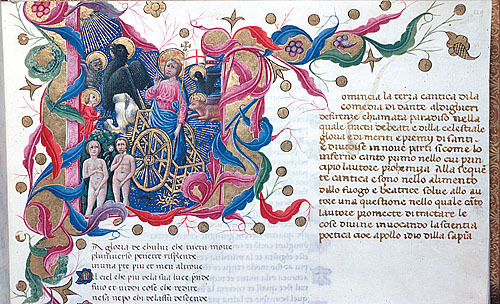 omincia la terza cantica dila
comedia di dante aldighieri
de firenze chiamata paradiso nella
quale tracta de beati e dila celestiale
gloria e di meriti e premij di santi
E divide in nove parti sicome lo
inferno canto primo nello cui prin
cipio lautore prohemiza alla seque
te cantica e sono nello alimento
dello fuogo e beatrice solve allo au
tore una questione nello quale cato
lautore promette di tractare le
cose divine invocando la scientia
poetica cioe apollo idio della sapia
A gloria de chului che tucto move
pluniverso penetra risplende
in una pte piu et meno altrove
Nel ciel che piu dela sua luce prende
fuio et vidi cose che redire
nesa nepo chi dela su descende